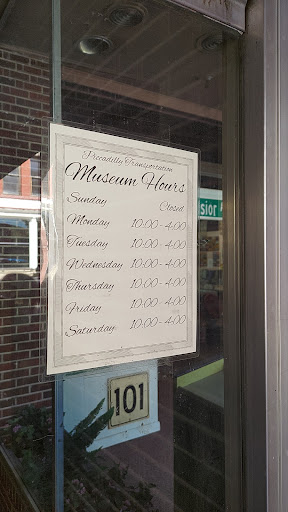 Piccadilly Transportation
Museum Hours
Sunday Closed
Monday 10:00 - 4:00
Tuesday 10:00 - 4:00
Wednesday 10:00 - 4:00
Thursday 10:00 - 4:00
Friday 10:00 - 4:00
Saturday 10:00 - 4:00
101